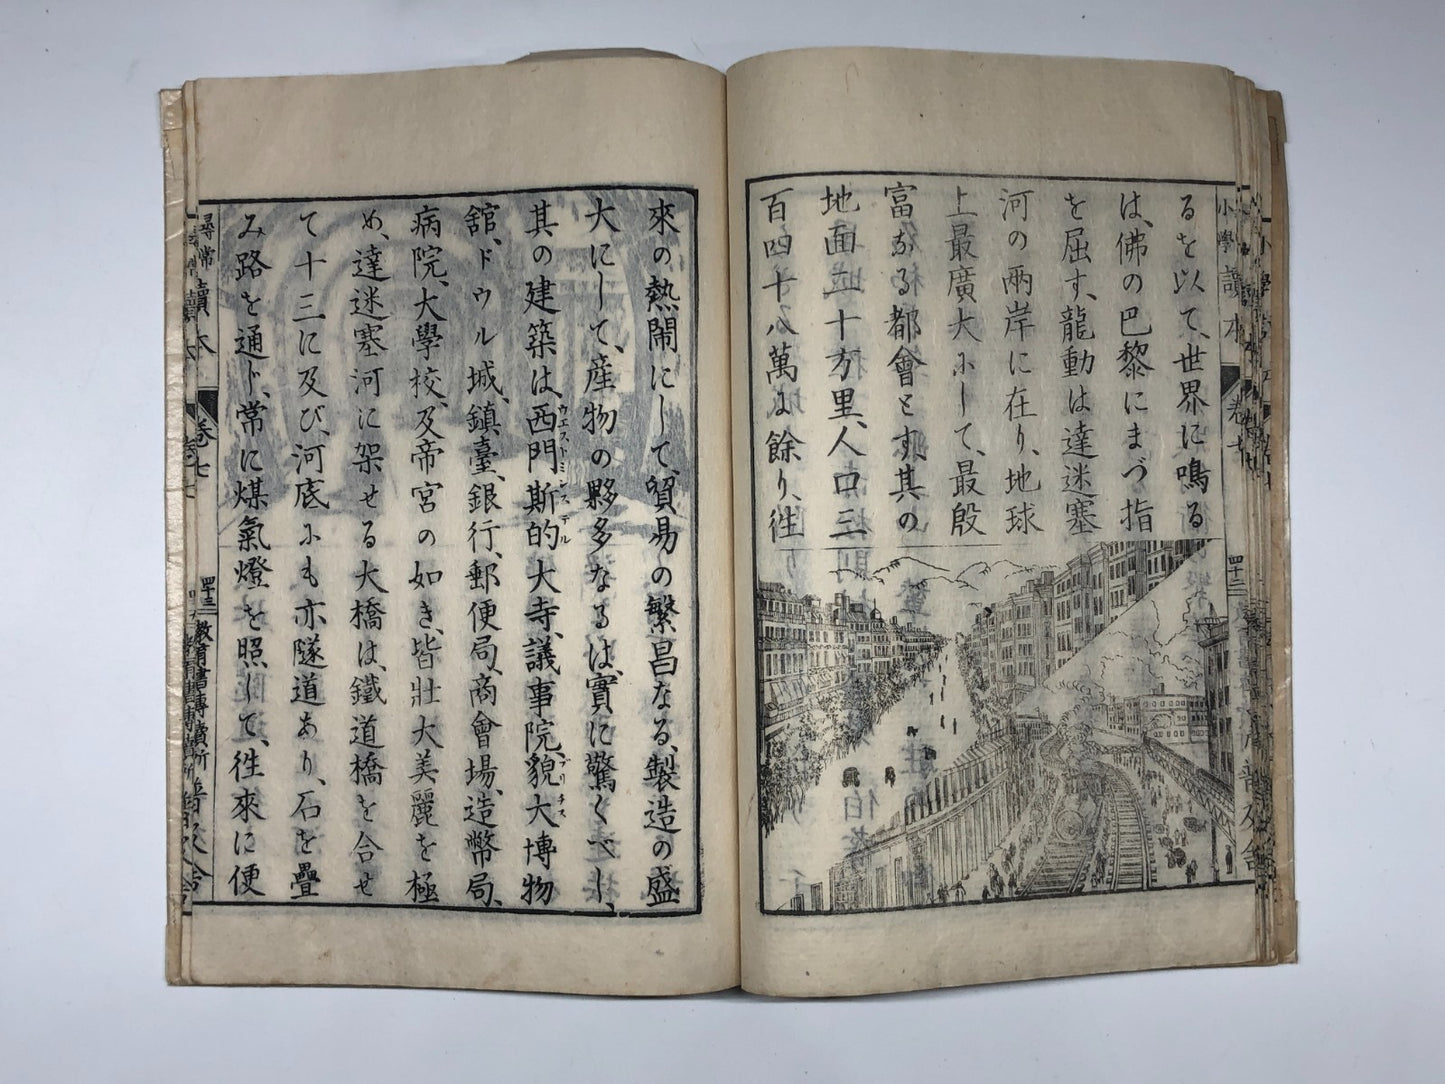 小學讀本
卷七
四十二
るを以て、世界に鳴る
は、佛の巴黎にまづ指
を屈す、龍動は達迷塞
河の兩岸に在り、地球
上最廣大にして、最殷
富なる都會とす、其の
地面凡十方里、人口三
百四十八萬に餘り、徃
來の熱鬧にして、貿易の繁昌なる、製造の盛
大にして、産物の夥多なるは、實に驚くべし、
其の建築は、西門斯的大寺、議事院、貌大博物
ウエストミンステル
ブリチス
舘、ドウル城、鎮臺、銀行、郵便局、商會場、造幣局、
病院、大學校、及帝宮の如き、皆壯大美麗を極
め、達迷塞河に架せる大橋は、鐵道橋を合せ
て十三に及び、河底にも亦隧道あり、石を疊
み路を通ジ、常に煤氣燈を照して、徃來に便
尋常
讀本
卷七
四十三